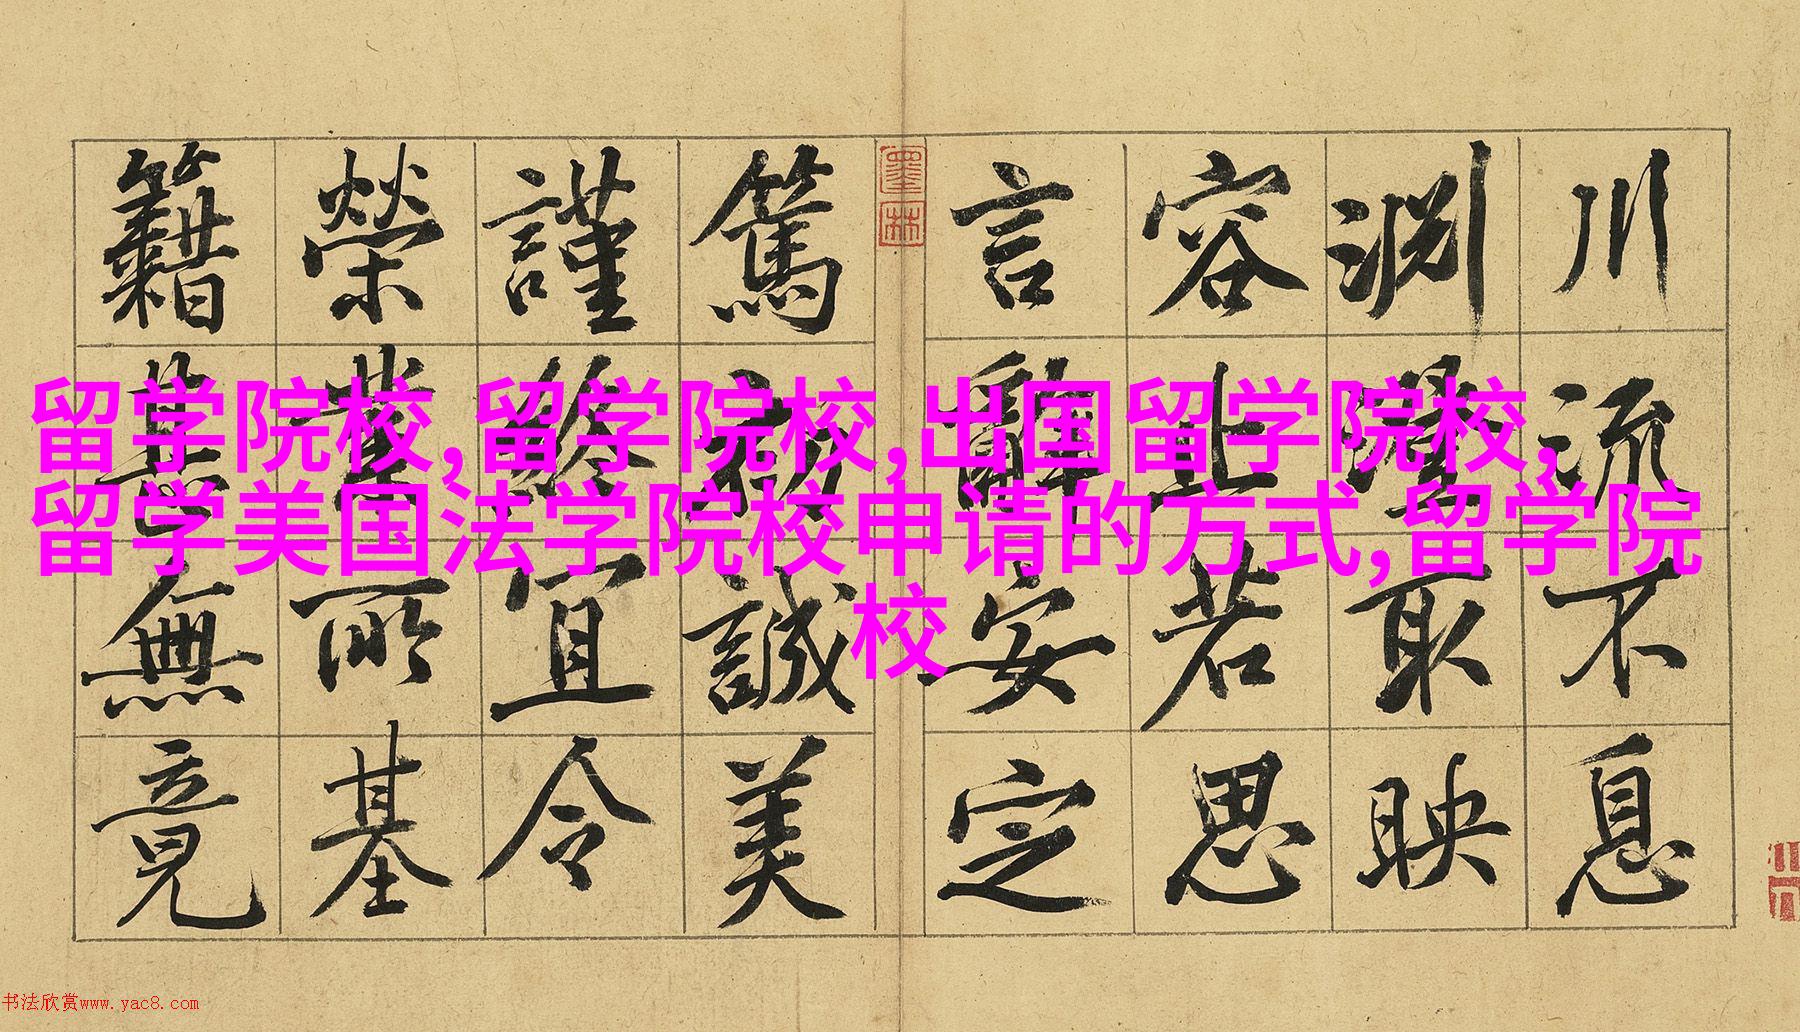 川流不息
淵澄取映
容止若思
言辭安定
墨林
篤初誠美
謹終宜令
榮業所基
籍甚無竟
留学院校,留学院校,出国留学院校,
留学美国法学院校申请的方式,留学院
校
书法欣赏www.yac8.com